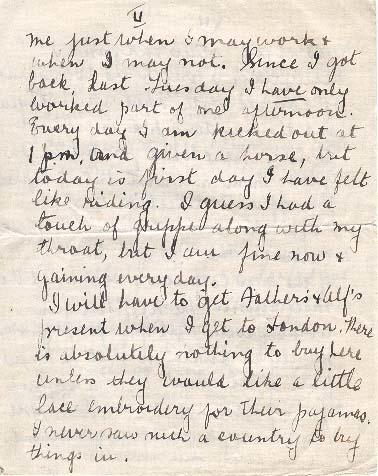 II
me just when I may work &
when I may not. Since I got
back, last Tuesday I have only
worked part of one afternoon.
Every day I am kicked out at
1 pm, and given a horse, but
today is first day I have felt
like riding. I guess I had a
touch of grippe along with my
throat, but I am fine now &
gaining everyday.
I will have to get Father's & Alf's
present when I get to London. There
is absolutely nothing to buy here
unless they would like a little
lace embroidery for their pajamas.
I never saw such a country to buy
things in.